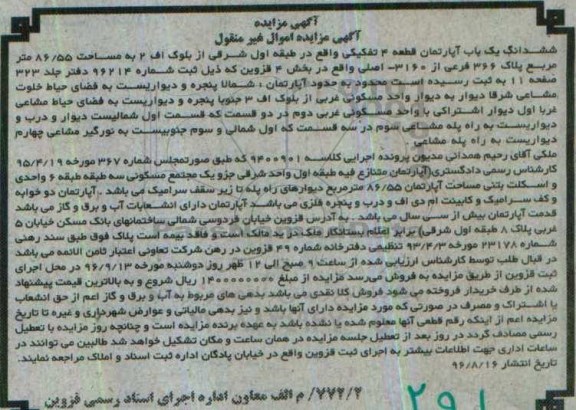 آگهی مزایده
آگهی مزایده اموال غیر منقول
ششدانگ یک باب آپارتمان قطعه 4 تفکیکی واقع در طبقه اول شرقی از بلوک اف 2 به مساحت 86/55 متر
مربع پلاک 366 فرعی از 3160- اصلی واقع در بخش 4 قزوین که ذیل ثبت شماره 96214 دفتر جلد 323
صفحه 11 به ثبت رسیده است محدود به حدود آپارتمان : شمالا پنجره و دیواریست به فضای حیاط خلوت
مشاعی شرقا دیوار به دیوار واحد مسکونی غربی از بلوک اف 3 جنوبا پنجره و دیواریست به فضای حیاط مشاعی
غربا اول دیوار اشتراکی با واحد مسکونی غربی دوم در دو قسمت که قسمت اول شمالیست دیوار و درب و
دیواریست به راه پله مشاعی سوم در سه قسمت که اول شمالی و سوم جنوبیست به نورگیر مشاعی چهارم
دیواریست به راه پله مشاعی
ملکی آقای رحیم همدانی مدیون پرونده اجرایی کلاسه 9400901 که طبق صورتمجلس شماره 367 مورخه 95/4/19
کارشناس رسمی دادگستری(آپارتمان متنازع فیه طبقه اول واحد شرقی جزو یک مجتمع مسکونی سه طبقه 6 واحدی
و اسکلت بتنی مساحت آپارتمان 86/55 مترمربع دیوارهای راه پله تا زیر سقف سرامیک می باشد . آپارتمان دو خوابه
و کف سرامیک و کابینت ام دی اف و درب و پنجره فلزی می باشد آپارتمان دارای انشعابات آب و برق و گاز می باشد
قدمت آپارتمان بیش از سی سال می باشد . به آدرس قزوین خیابان فردوسی شمالی ساختمانهای بانک مسکن خیابان 5
غربی پلاک 8 طبقه اول شرقی) برابر اعلام بستانکار ملک در ید مالک است و فاقد بیمه است پلاک فوق طبق سند رهنی
شماره 23178 مورخه 93/4/3 تنظیمی دفترخانه شماره 49 قزوین در رهن شرکت تعاونی اعتبار ثامن الائمه می باشد
در قبال طلب توسط کارشناس ارزیابی شده از ساعت 9 صبح الی 12 ظهر روز دوشنبه مورخه 96/9/13 در محل اجرای
ثبت قزوین از طریق مزایده به فروش میرسد مزایده از مبلغ 1400000000 ریال شروع و به بالاترین قیمت پیشنهاد
شده از طرف خریدار فروخته می شود فروش کلا نقدی می باشد بدهی های مربوط به آب و برق و گاز اعم از حق انشعاب
یا اشتراک و مصرف در صورتی که مورد مزایده دارای آنها باشد و نیز بدهی مالیاتی و عوارض شهرداری و غیره تا تاریخ
مزایده اعم از اینکه رقم قطعی آنها معلوم شده یا نشده باشد به عهده برنده مزایده است و چنانچه روز مزایده با تعطیل
رسمی مصادف گردد در روز بعد از تعطیل جلسه مزایده در همان ساعت و مکان تشکیل خواهد شد طالبین می توانند در
ساعات اداری جهت اطلاعات بیشتر به اجرای ثبت قزوین واقع در خیابان پادگان اداره ثبت اسناد و املاک مراجعه نمایند.
تاریخ انتشار 96/8/16
772/2/ م الف معاون اداره اجرای اسناد رسمی قزوین
291